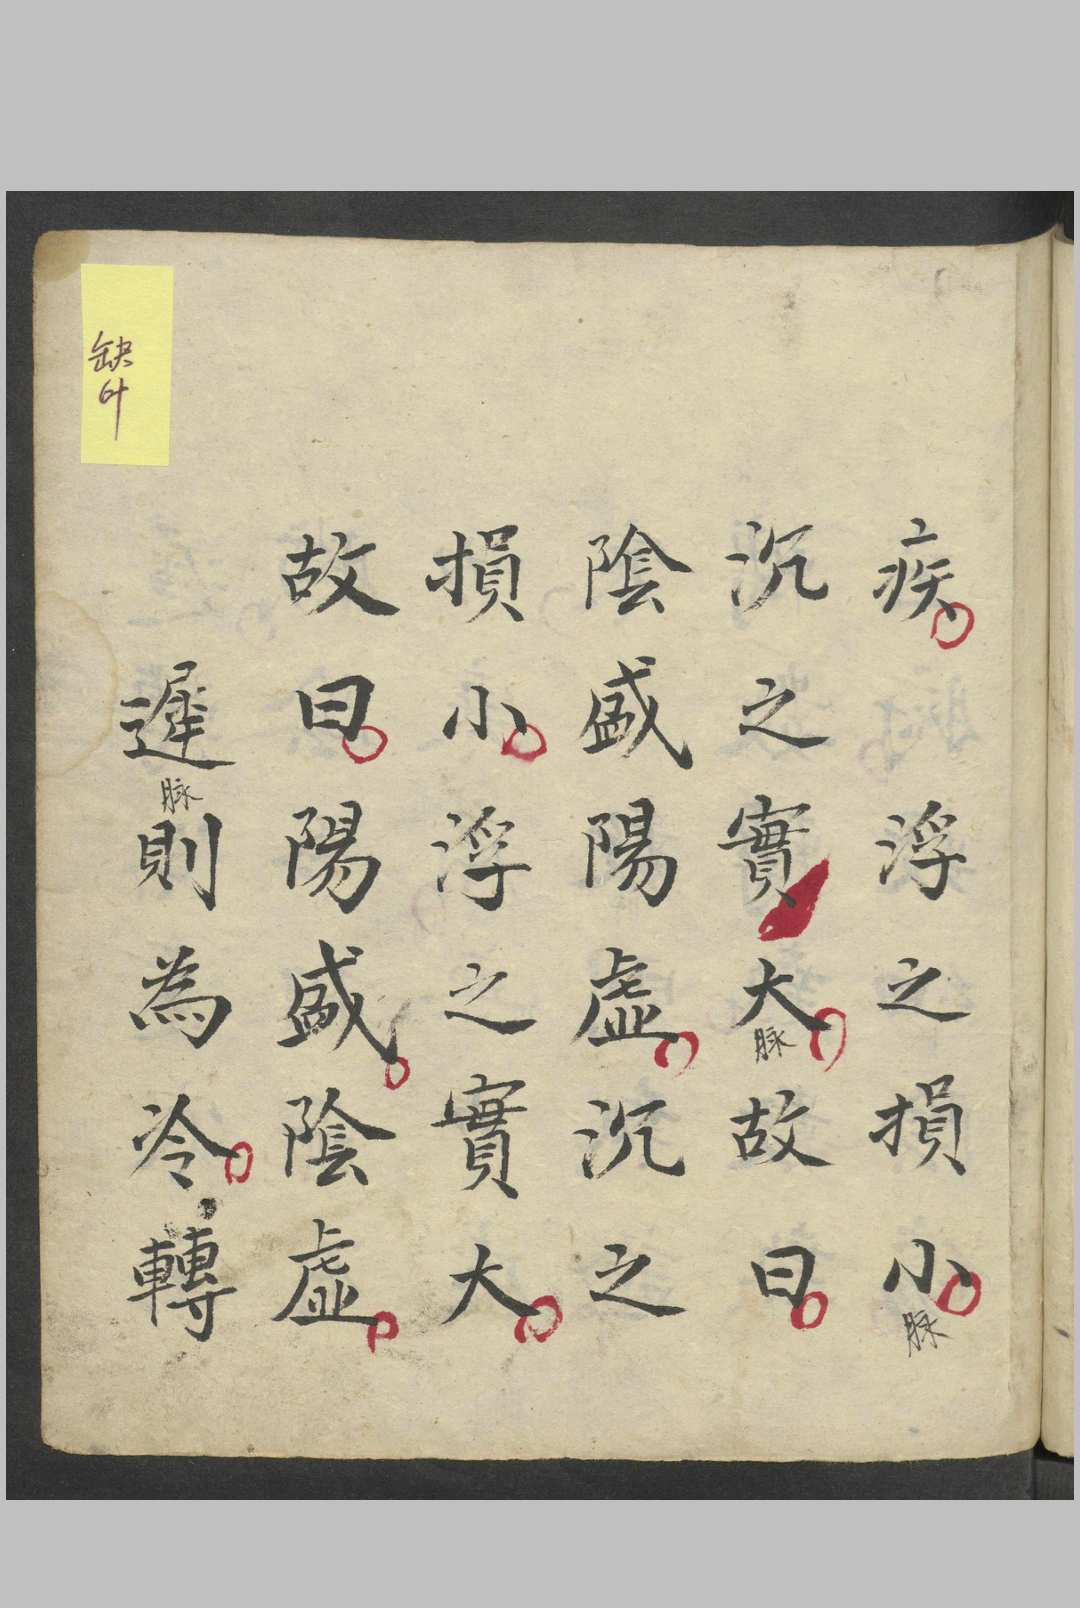 疾浮之損小脉
沉之實大脉故曰
陰盛陽虛沉之
損小浮之實大
故曰陽盛陰虛
遲脉則為冷轉
缺叶